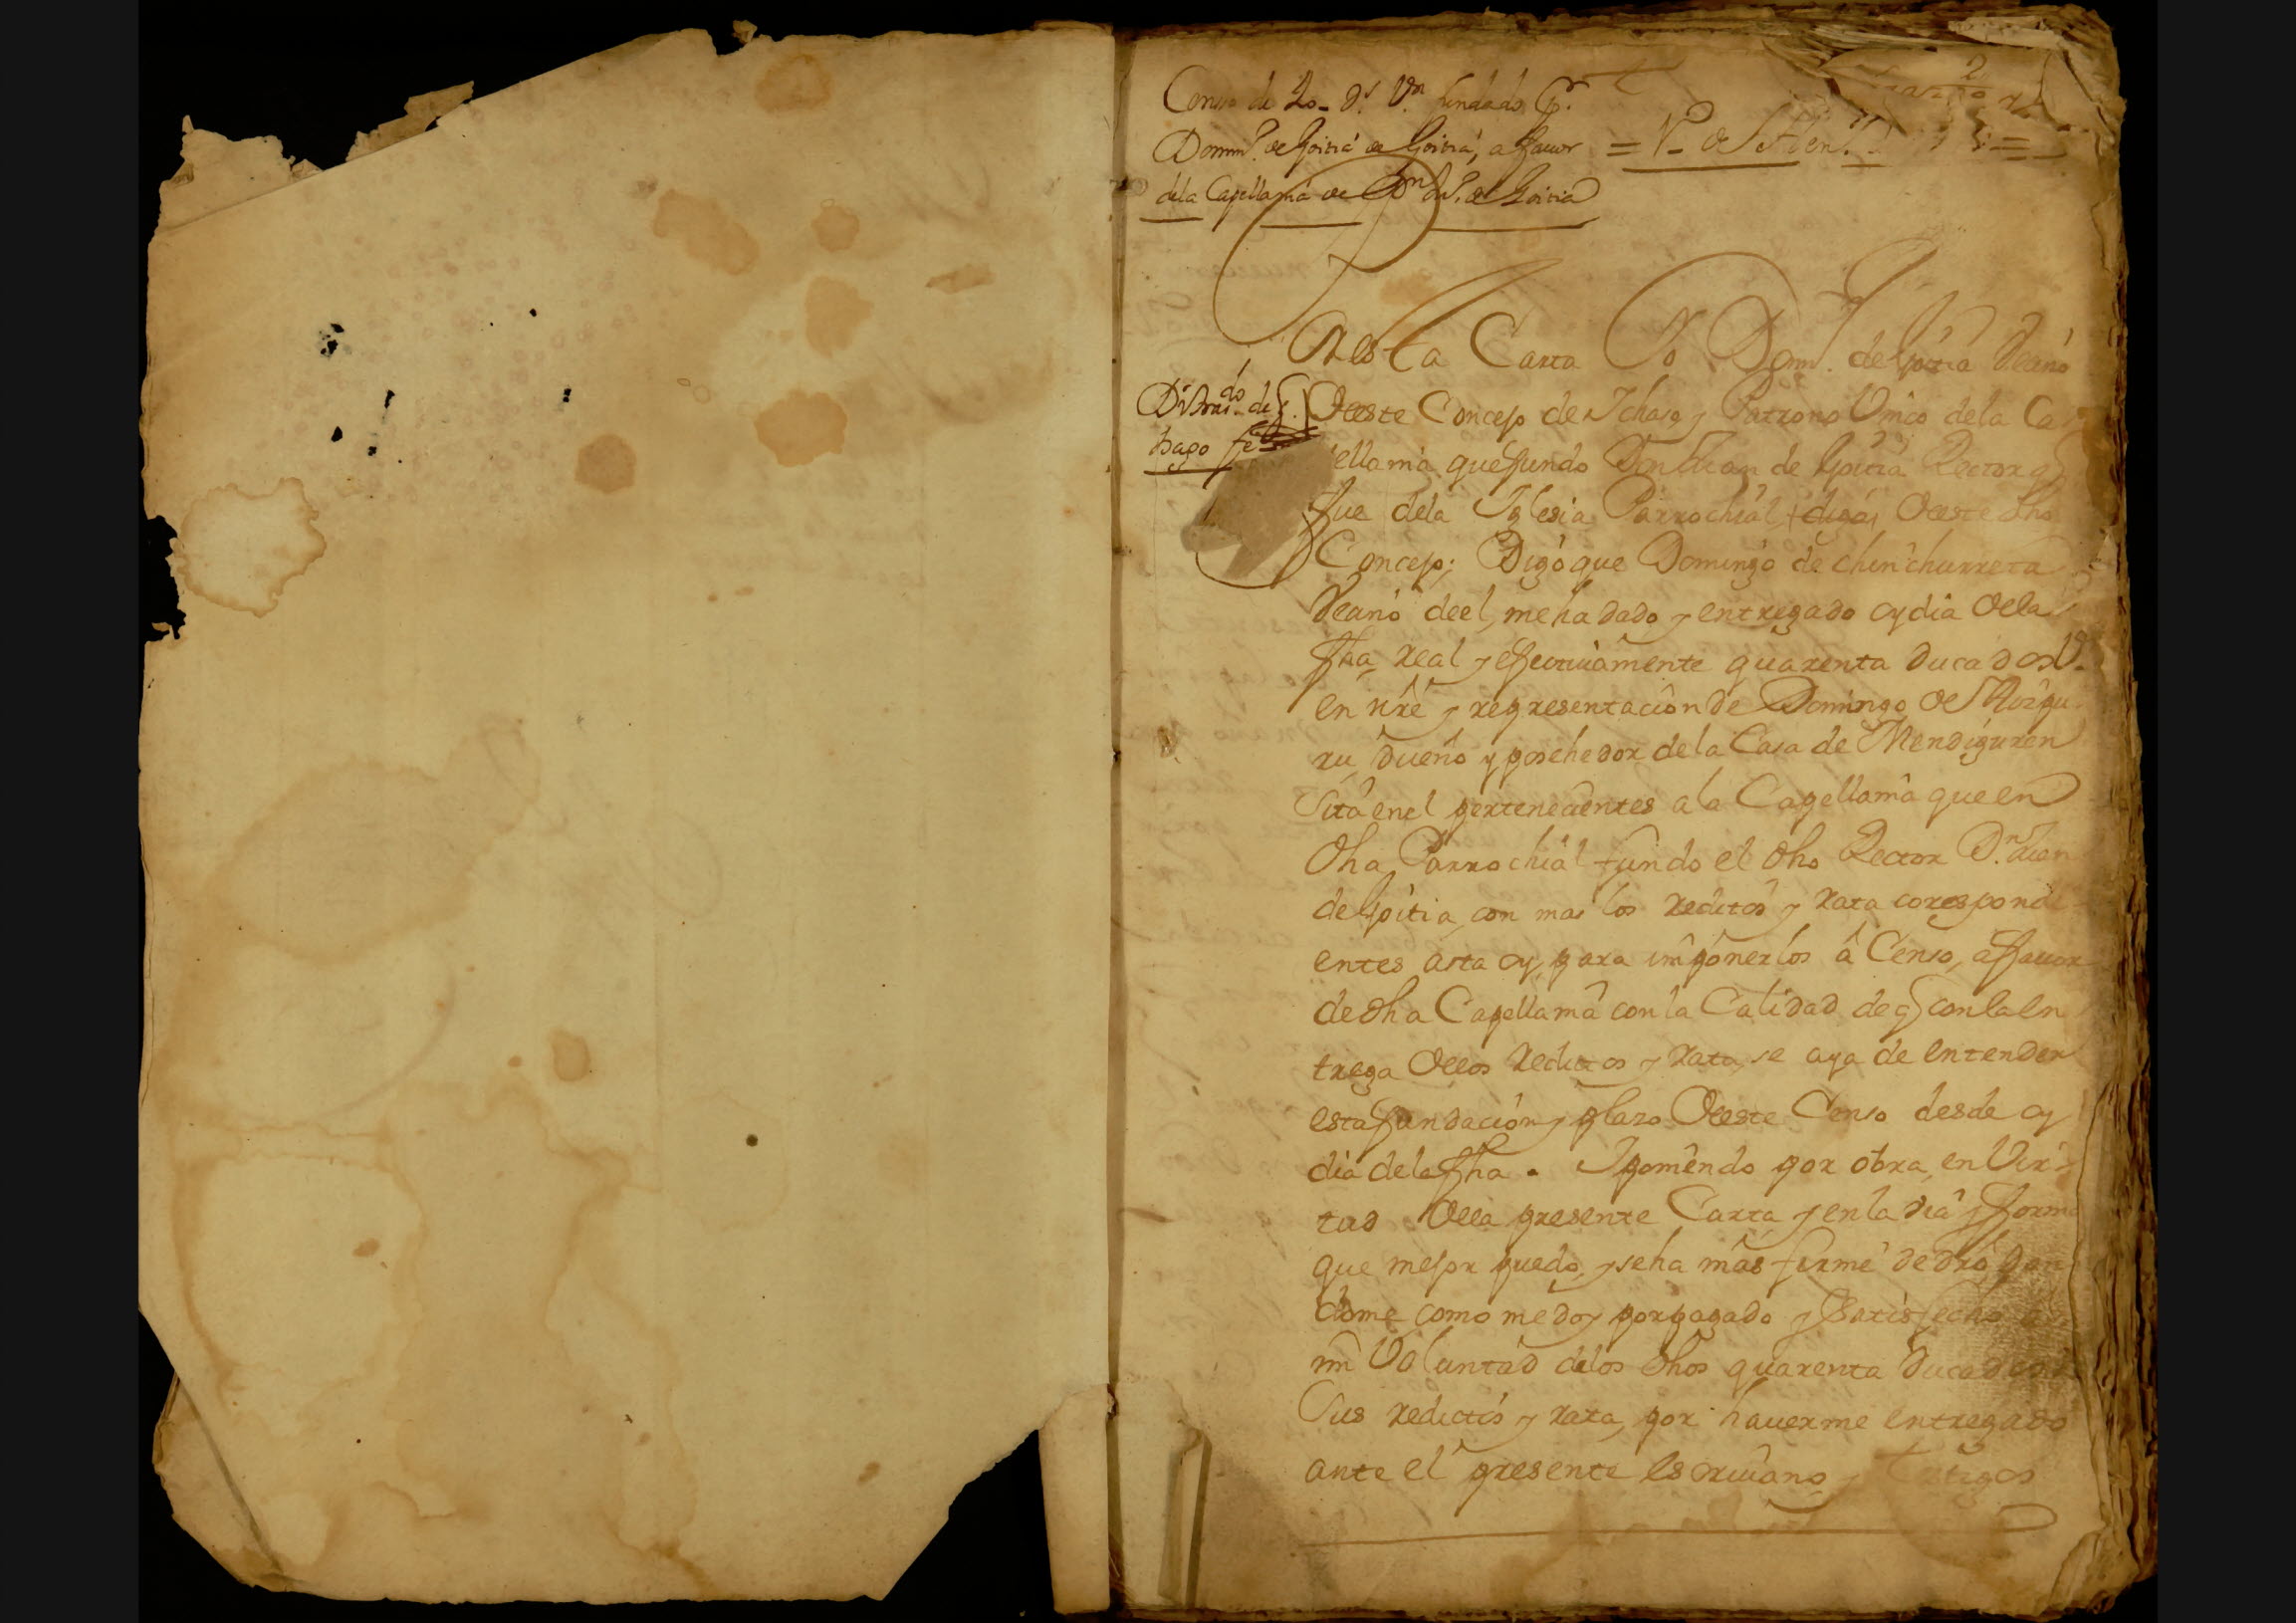 Censo de 40 Ds. Vn. fundado Pr.
Domin. de Goitia de Goitia, a ffauor
dela Capellania de Dn. Ju. de Goitia
2
En esta Carta Yo Domin. de Goitia Veçino
Distrai.do de q.
pago fe
Deeste Concejo de Ichaso y Patrono Vnico dela Ca
pellania que ffundo Don Juan de Goitia Rector q
fue dela Iglesia Parrochial, diga, Deeste dho
Concejo; Digo que Domingo de Chinchurreta
Veçino deel, me ha dado y entregado oy dia dela
ffha real y effectiuamente quarenta ducados V.
en nre y representacion de Domingo de
ru, dueño y posehedor dela Casa de Mendiguren
Sita enel pertenecientes ala Capellania que en
dha Parrochial fundo el dho Rector Dn. Juan
de Goitia, con mas los reditos y rata corespondi
entes asta oy, para imponerlos â Censo, a ffauor
de dha Capellania con la Calidad de q con la en
trega dellos reditos y rata, se aya de entender
esta ffundacion y plazo Deeste Censo desde oy
dia dela ffha. Y poniendo por obra, en Vir
tud Dela presente Carta y en la via y fforma
que mejor puedo, y seha mas firme de dro dan
dome como me doy por pagado y satisfecho a
mi Voluntad delos dhos quarenta Ducados
Sus redictos y rata, por hauerme entregado
ante el presente escriuano y testigos